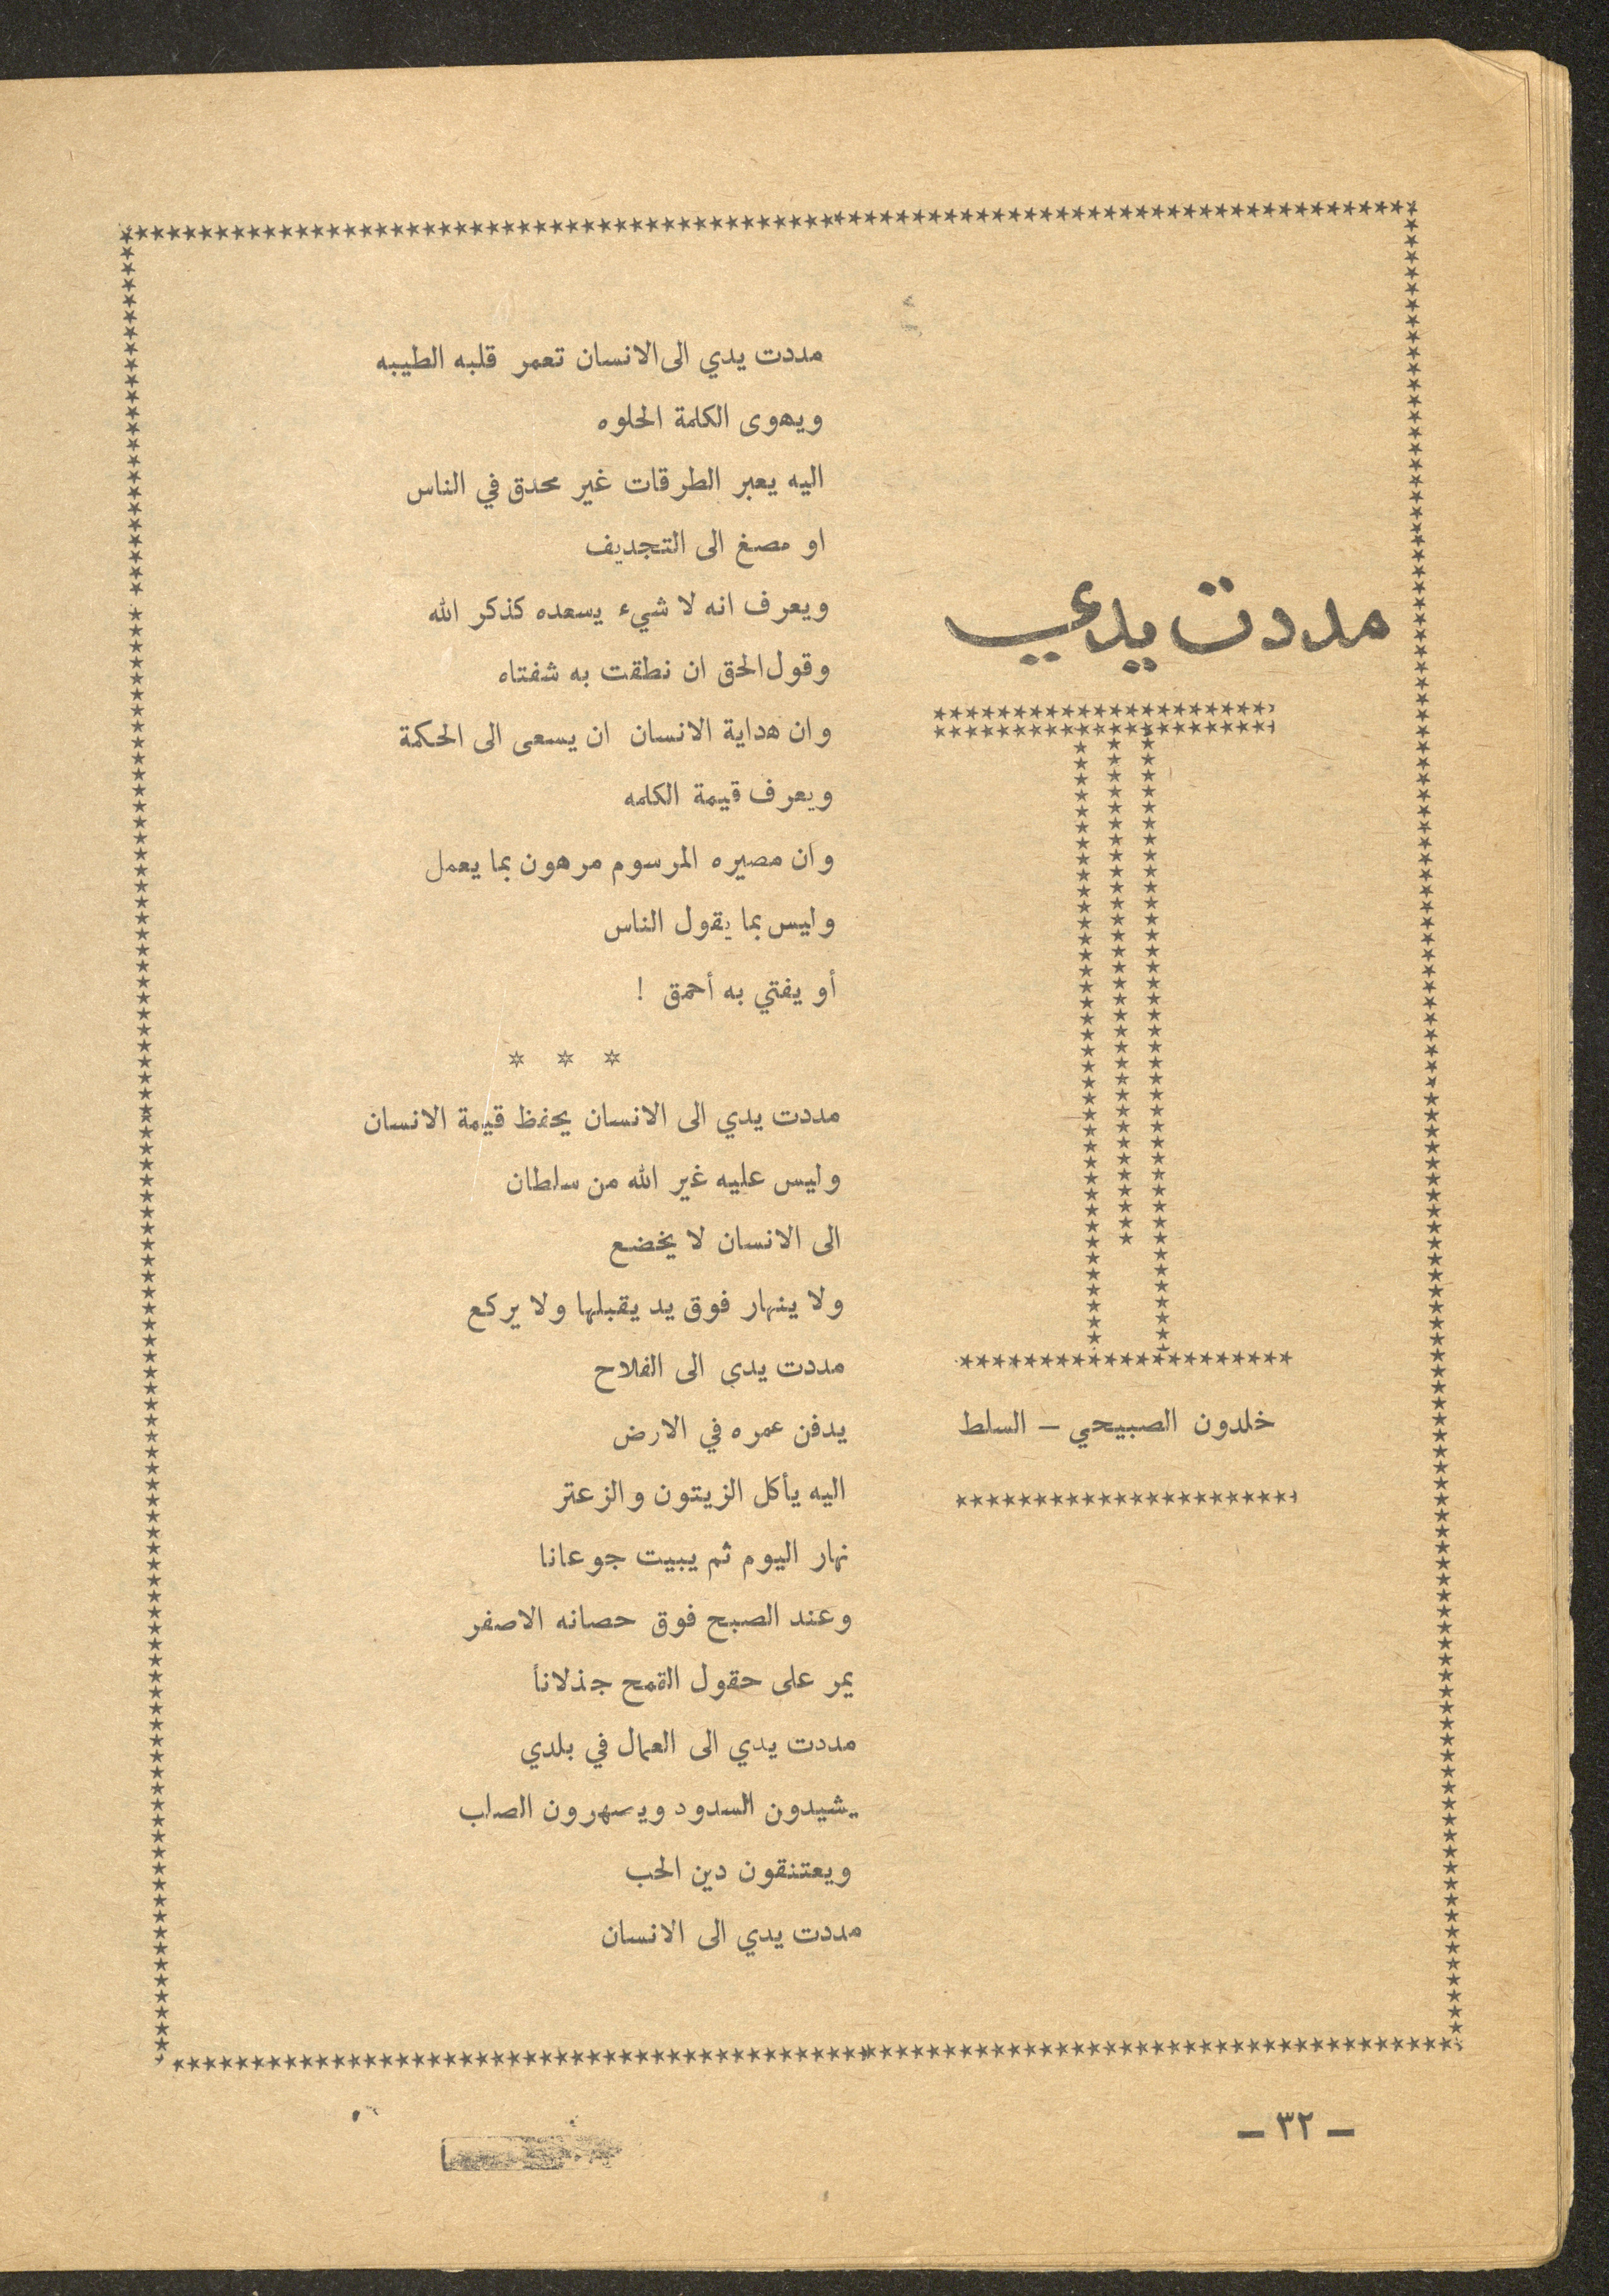 مددت يدي
خلدون الصبيحي – السلط
مددت يدي الى الانسان تعمر قلبه الطيبه
ويهوى الكلمة الحلوه
اليه يعبر الطرقات غير محدق في الناس
او مصغ الى التجديف
ويعرف انه لا شيء يسعده كذكر الله
وقول الحق ان نطقت به شفتاه
وان هداية الانسان ان يسعى الى الحكمة
ويعرف قيمة الكلمه
وان مصيره المرسوم مرهون بما يعمل
وليس بما يقول الناس
أو يفتي به أحمق !
* * *
مددت يدي الى الانسان يحفظ قيمة الانسان
وليس عليه غير الله من سلطان
الى الانسان لا يخضع
ولا ينهار فوق يد يقبلها ولا يركع
مددت يدي الى الفلاح
يدفن عمره في الارض
اليه يأكل الزيتون والزعتر
نهار اليوم ثم يبيت جوعانا
وعند الصبح فوق حصانه الاصفر
يمر على حقول القمح جذلاناً
مددت يدي الى العمال في بلدي
يشيدون السدود ويسهرون الصلب
ويعتنقون دين الحب
مددت يدي الى الانسان
– ٣٢ –